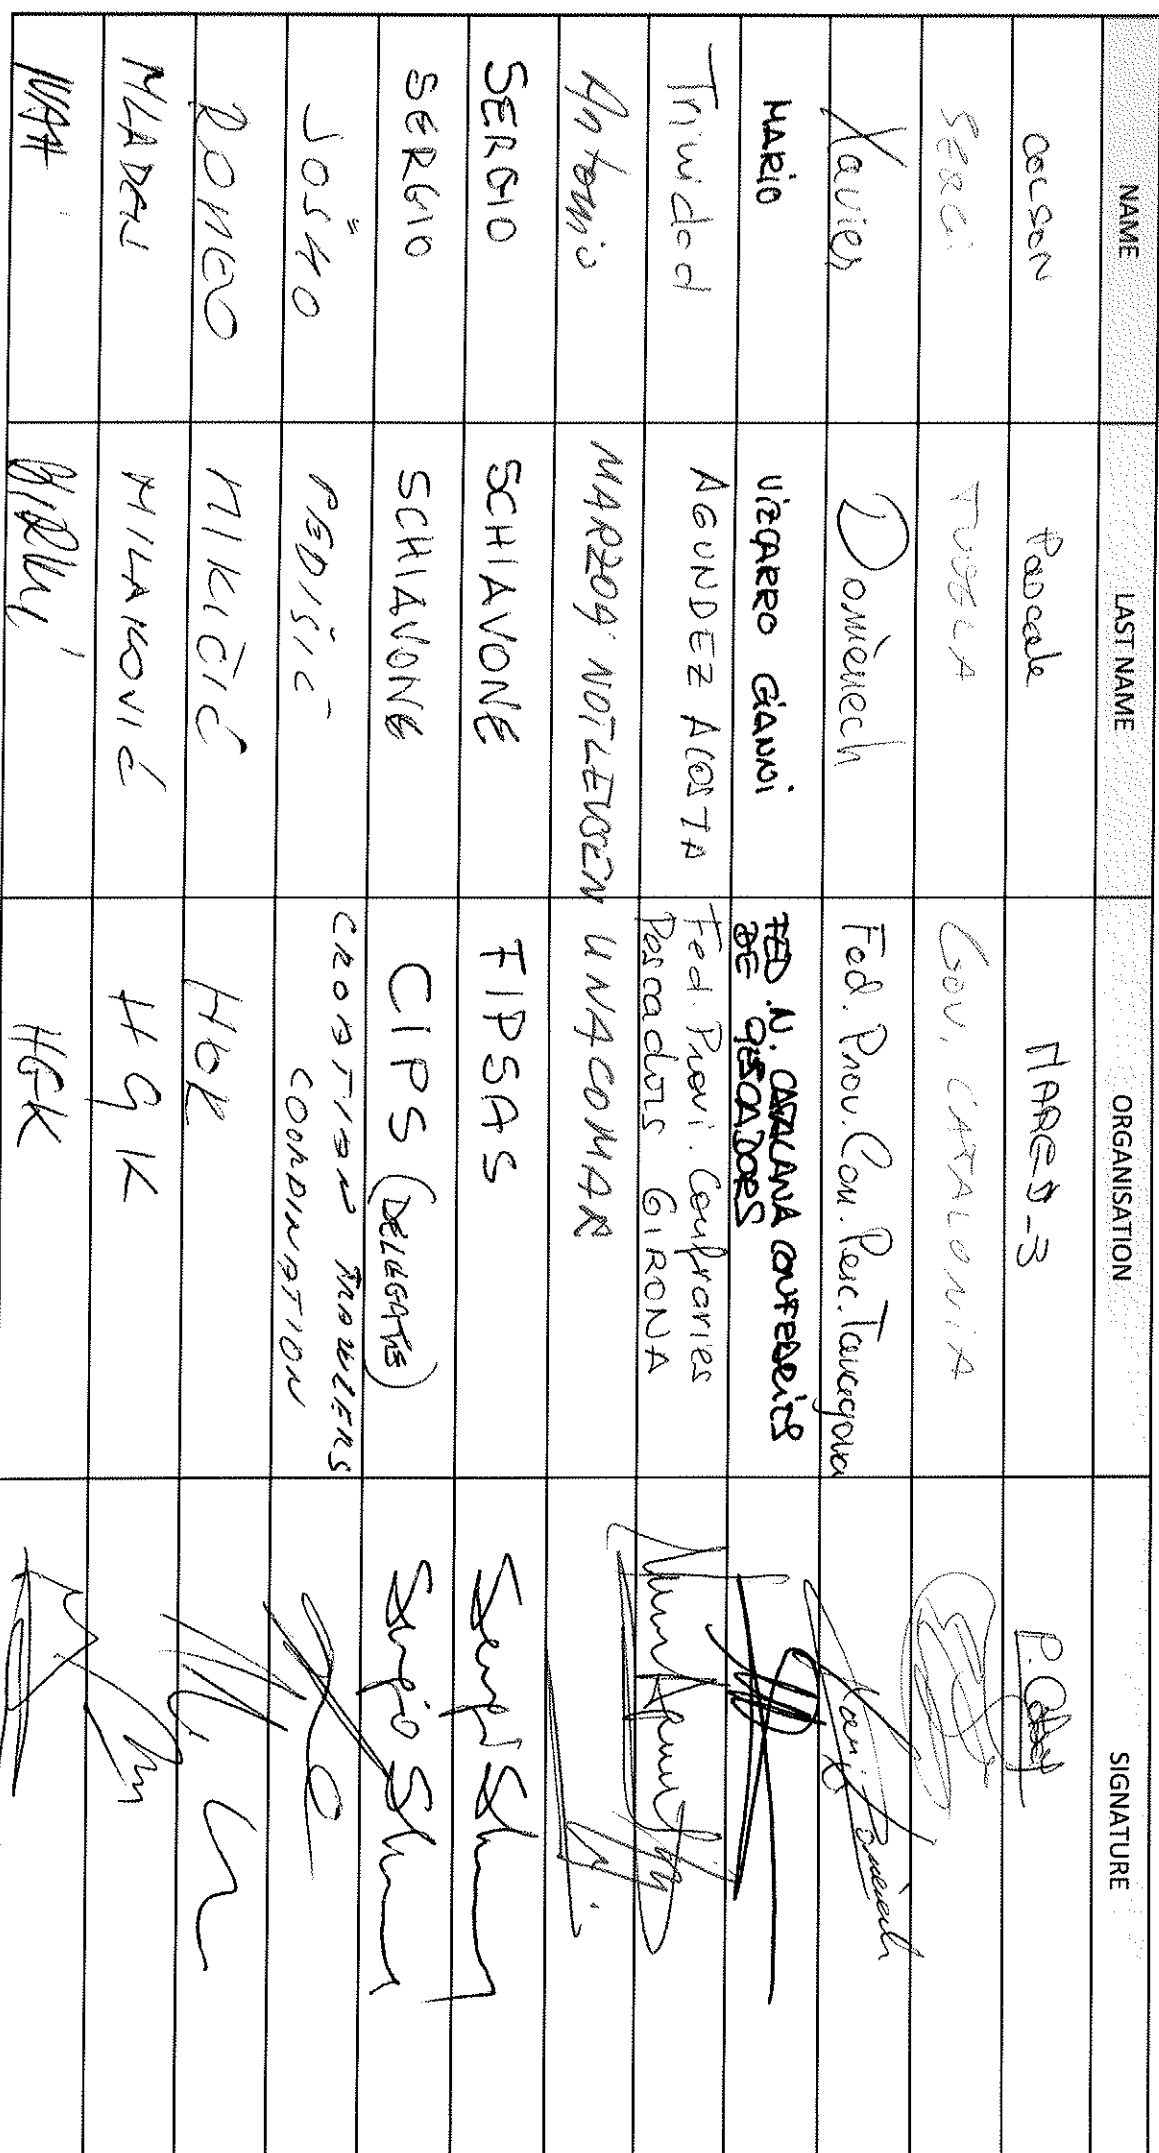 NAME LAST NAME ORGANISATION SIGNATURE
COLSON Pascale MARED-3 P. Colson
Sergi TUDELA GOV. CATALONIA
Xavier Domènech Fed. Prov. Con. Pesc. Tarragona Xavier Domènech
MARIO VIZCARRO GIANNI FED. N. CATALANA CONFRARIES
DE PESCADORS
Trinidad AGUNDEZ ACOSTA Fed Provi. Confraries
Pescadors GIRONA
Antonio MARZOA NOTLEVSEN UNACOMAR
SERGIO SCHIAVONE FIPSAS
SERGIO SCHIAVONE CIPS (DELEGATE)
JOŠKO PEDIŠIĆ CROATIAN TRAWLERS
COORDINATION
ROMEO MIKIČIĆ HOK
MLADEN MILAKOVIĆ HGK
HGK